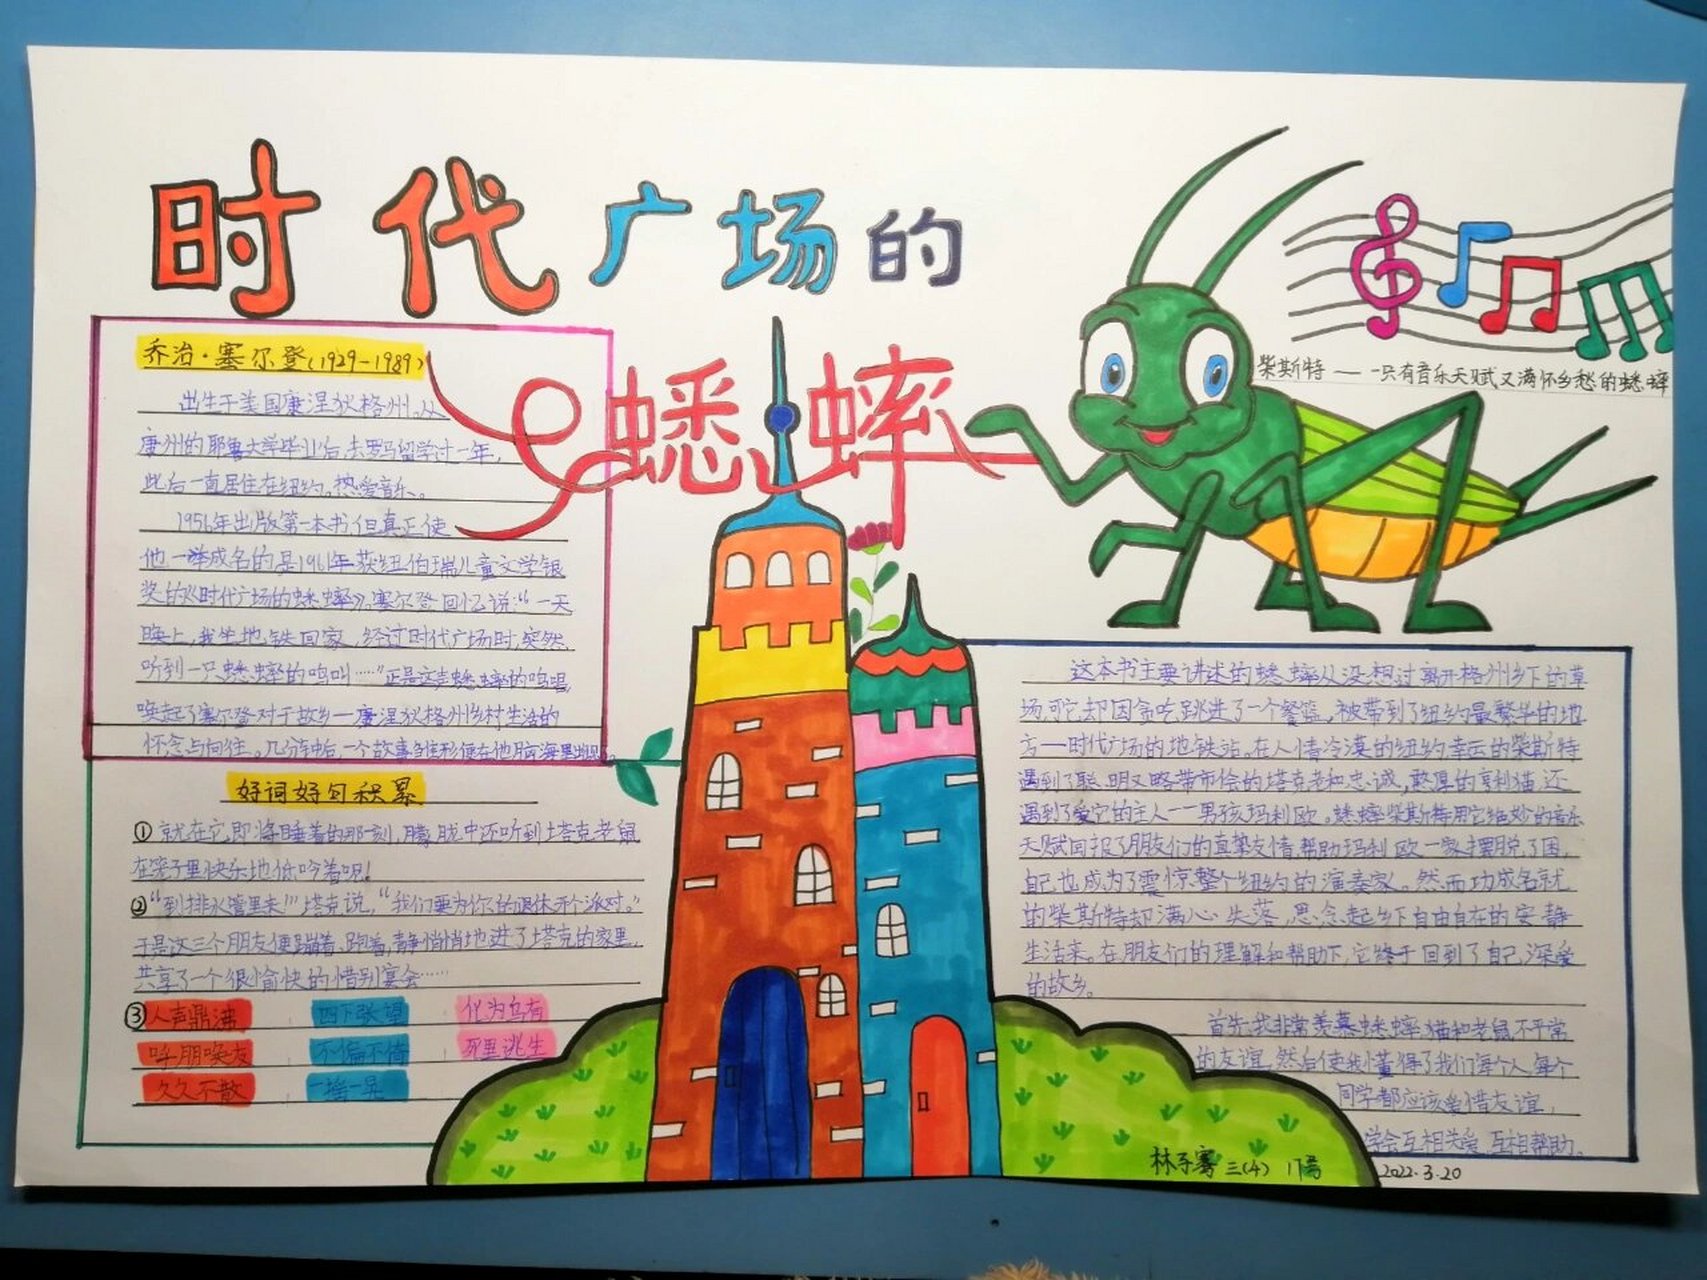 时代广场的
蟋蟀
柴斯特——一只有音乐天赋又满怀乡愁的蟋蟀
乔治·塞尔登(1929-1989)
出生于美国康涅狄格州。从
康州的耶鲁大学毕业后,去罗马留学过一年,
此后一直居住在纽约。热爱音乐。
1956年出版第一本书,但真正使
他一举成名的是1961年获纽伯瑞儿童文学银
奖的《时代广场的蟋蟀》。塞尔登回忆说:“一天
晚上,我坐地铁回家,经过时代广场时,突然
听到一只蟋蟀的鸣叫……”正是这声蟋蟀的鸣唱,
唤起了塞尔登对于故乡—康涅狄格州乡村生活的
怀念与向往。几分钟后,一个故事雏形便在他脑海里出现了。
好词好句积累
①就在它即将睡着的那一刻,朦胧中还听到塔克老鼠
在笼子里快乐地低吟着呢!
②“到排水管里来!”塔克说,“我们要为你的退休开个派对。”
于是这三个朋友便蹦着、跑着,静悄悄地进了塔克的家里,
共享了一个很愉快的惜别宴会……
③人声鼎沸 四下张望 化为乌有
呼朋唤友 不偏不倚 死里逃生
久久不散 一摇一晃
这本书主要讲述的蟋蟀从没想过离开格州乡下的草
场,可它却因贪吃跳进了一个餐篮,被带到了纽约最繁华的地
方——时代广场的地铁站。在人情冷漠的纽约,幸运的柴斯特
遇到了聪明又略带市侩的塔克老和忠诚,憨厚的亨利猫,还
遇到了爱它的主人——男孩玛利欧。蟋蟀柴斯特用它绝妙的音乐
天赋回报了朋友们的真挚友情,帮助玛利欧一家摆脱了困,
自己也成为了震惊整个纽约的演奏家。然而功成名就
的柴斯特却满心失落,思念起乡下自由自在的安静
生活来。在朋友们的理解和帮助下,它终于回到了自己深爱
的故乡。
首先,我非常羡慕蟋蟀、猫和老鼠不平常
的友谊,然后使我懂得了我们每个人,每个
同学都应该爱惜友谊,
学会互相关爱,互相帮助。
林子骞 三(4) 17号
2022.3.20